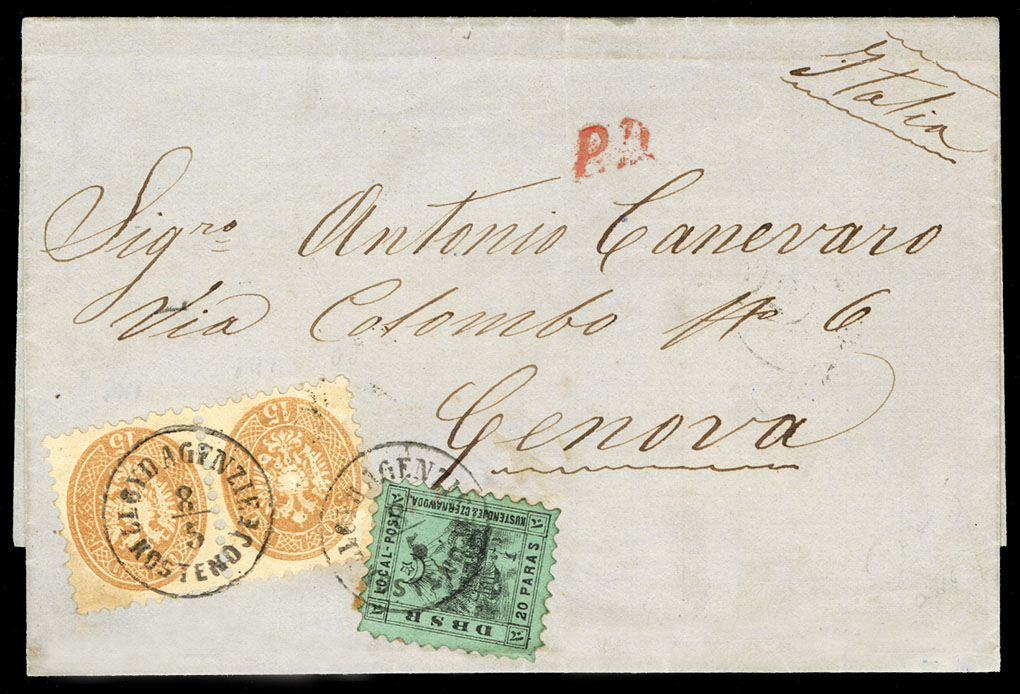 Italia
P.D.
Sigro Antonio Canevaro
Via Colombo No 6
Genova
15
15
LLOYD AGENZIE
KUSTENDJE
8/5
AGENZIE
LOCAL-POST
KUSTENDJE & CZERNAWODA.
20 PARAS
DBSR